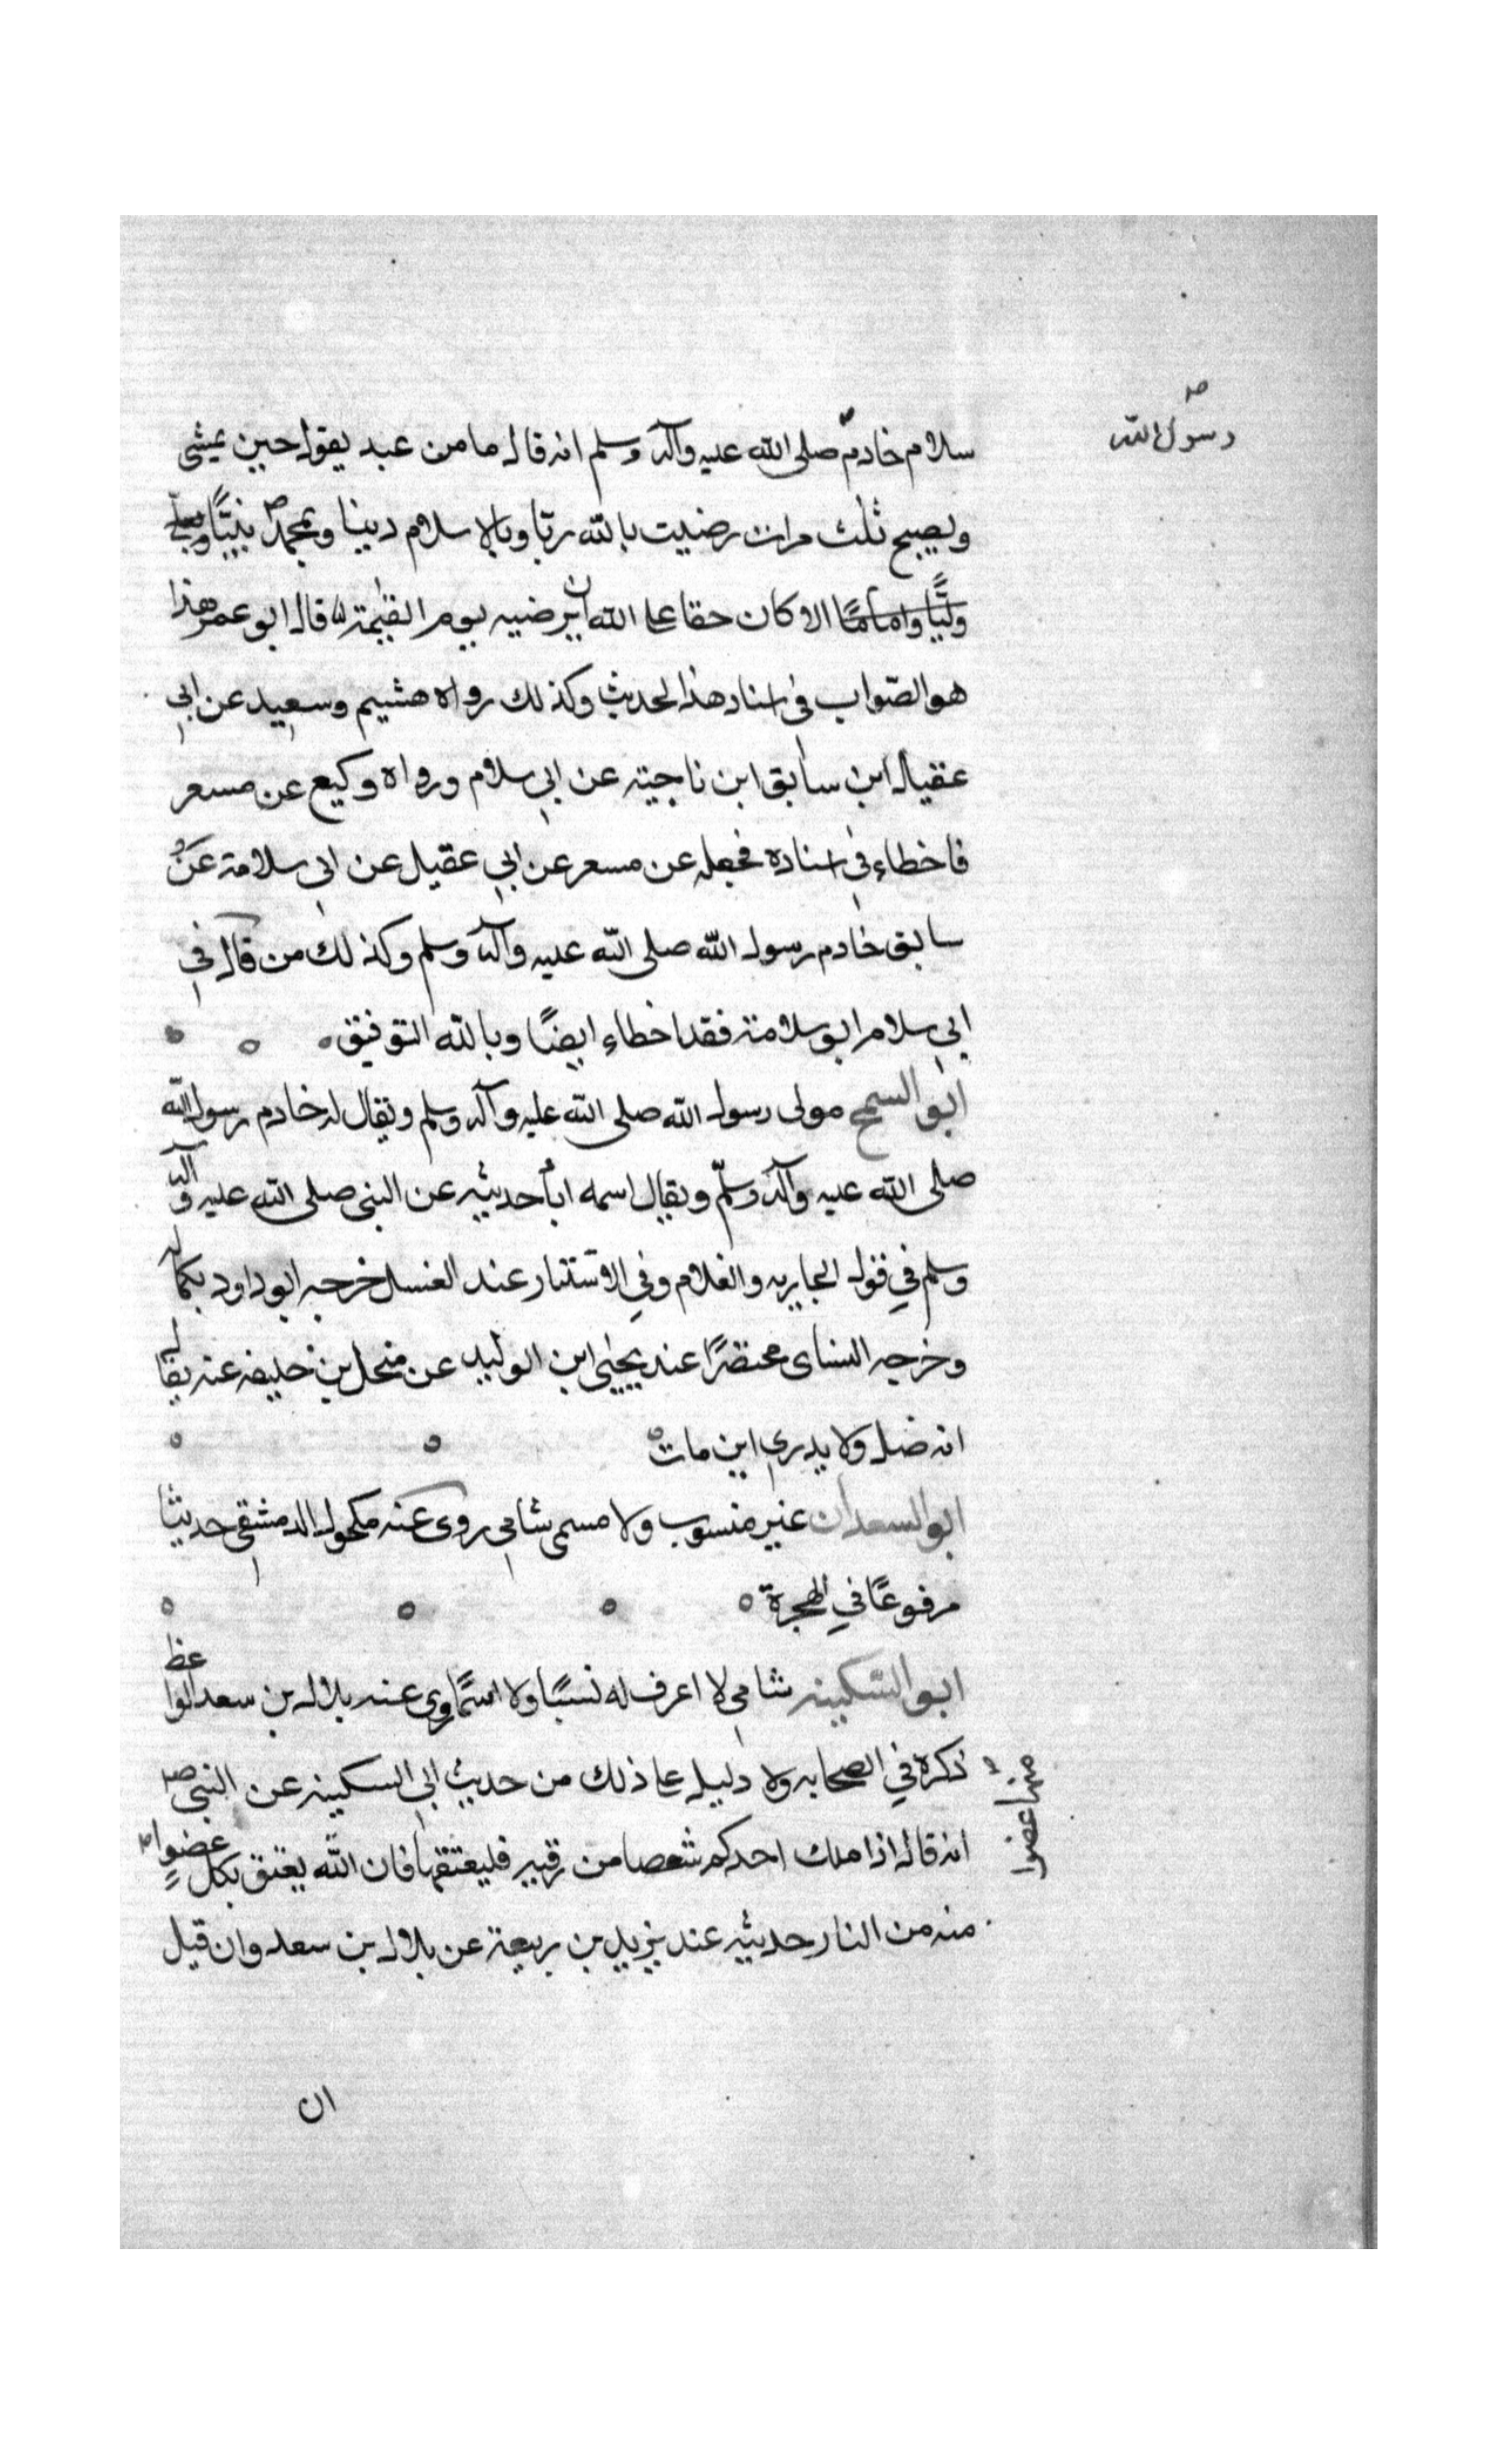 رسول الله صح
سلام خادم صلى الله عليه وآله وسلم انه قال ما من عبد يقول حين يمشي
ويصبح ثلث مرات رضيت بالله ربا وبالاسلام دينا وبمحمد ص نبيًّا وبعلي
وليًّا واماما الا كان حقا على الله ان يرضيه يوم القيٰمة قال ابو عمر هذا
هو الصّواب في اسناد هذا لحديث وكذلك رواه هشيم وسعيد عن ابي
عقيل ابن سابق ابن ناجية عن ابي سلام ورواه وكيع عن مسعر
فاخطاء في اسناده فجعله عن مسعر عن ابي عقيل عن ابي سلامة عن
سابق خادم رسول الله صلى الله عليه وآله وسلم وكذلك من قال في
ابي سلام ابو سلامة فقد اخطاء ايضًا وبالله التوفيق
ابو السمح مولى رسول الله صلى الله عليه وآله وسلم ويقال له خادم رسول الله
صلى الله عليه وآله وسلّم ويقال اسمه ابا حديثه عن النبي صلى الله عليه وآله
وسلم في قول الجاريه والغلام وفي الاستتار عند الغسل خرجه ابو داود بكماله
وخرجه النساى مختصرًا عند يحيى ابن الوليد عن محل بن خليفه عنه يقال
انه ضل ولا يدري اين مات
ابو السعدان غير منسوب ولا مسمى شامي روى عنه مكحول الدمشقي حديثا
مرفوعًا في الهجرة
ابو السّكينه شامي لا اعرف له نسبًا ولا اسمًا روى عنه بلال بن سعد الواعظ
ذكره في الصحابه ولا دليل على ذلك من حديث ابي السكينه عن النبي ص
انه قال اذا ملك احدكم شقصا من رقبه فليعتقها فان الله يعتق بكل عضوٍ
منها عضوا
منه من النار حديثه عند يزيد بن ربيعة عن بلال بن سعد وان قيل
ان